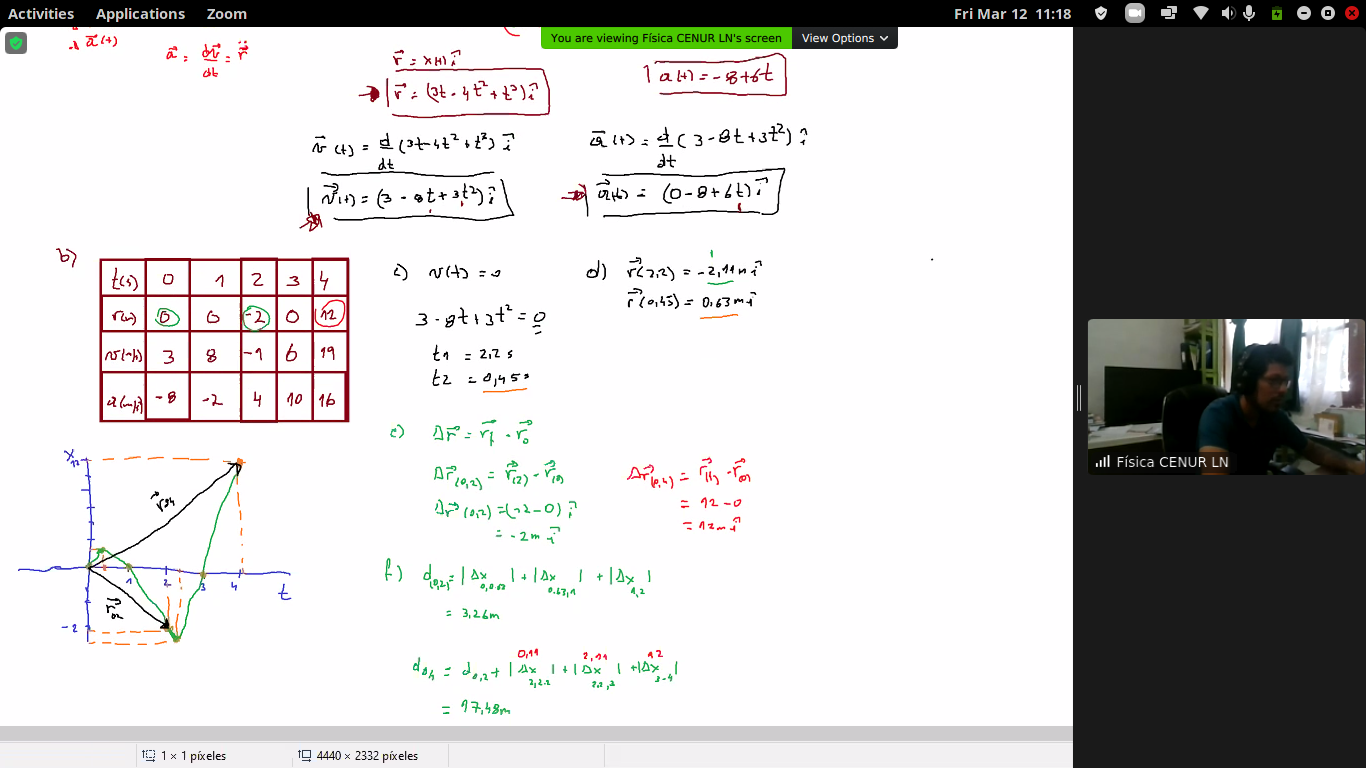 Activities Applications Zoom Fri Mar 12 11:18
You are viewing Física CENUR LN's screen View Options
a⃗(t)
a⃗ = dv⃗/dt = r⃗̈
r⃗ = x(t) î
r⃗ = (3t - 4t² + t³) î
a(t) = -8+6t
v⃗(t) = d/dt (3t-4t² + t³) î
a⃗(t) = d/dt (3 - 8t + 3t²) î
v⃗(t) = (3 - 8t + 3t²) î
a⃗(t) = (0 - 8 + 6t) î
b)
t(s) 0 1 2 3 4
r(m) 0 0 -2 0 12
v(m/s) 3 8 -1 6 19
a(m/s²) -8 -2 4 10 16
c) v(t) = 0
3 - 8t + 3t² = 0
t1 = 2,2 s
t2 = 0,45 s
d) r⃗(2,2) = -2,11 m î
r⃗(0,45) = 0,63 m î
e) Δr⃗ = r⃗f - r⃗0
Δr⃗(0,2) = r⃗(2) - r⃗(0)
Δr⃗(0,2) = (-2 - 0) î
= -2 m î
Δr⃗(0,4) = r⃗(4) - r⃗(0)
= 12 - 0
= 12 m î
f) d(0,2) = |Δx 0,0.63| + |Δx 0.63,1| + |Δx 1,2|
= 3,26 m
0,11 2,11 12
d0,4 = d0,2 + |Δx 2,2.2| + |Δx 2.2,3| + |Δx 3-4|
= 17,48 m
x
12
r⃗04
1 2 3 4
t
r⃗02
-2
Física CENUR LN
1 × 1 píxeles 4440 × 2332 píxeles